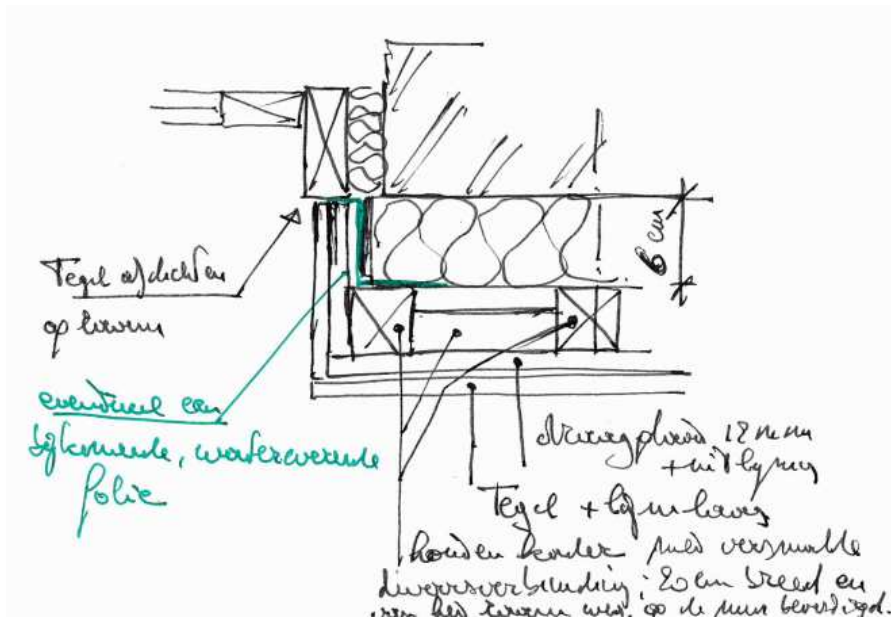 6 cm
Tegel afdichten
op kozijn
eventueel een
bijkomende, waterwerende
folie
draagplaat 12 mm
+ uitlijning
Tegel + lijmlaag
houten kader met versmalde
dwarsverbinding; 20 cm breed en
van het kozijn weg, op de muur bevestigd.